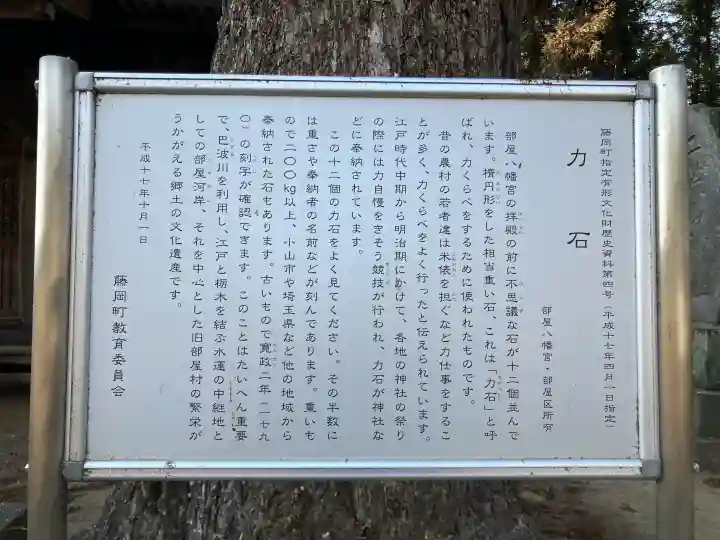 藤岡町指定有形文化財歴史資料第四号(平成十七年四月一日指定)
力石
部屋八幡宮・部屋区所有
部屋八幡宮の拝殿の前に不思議な石が十二個並んで
います。楕円形をした相当重い石、これは「力石」と呼
ばれ、力くらべをするために使われたものです。
昔の農村の若者達は米俵を担ぐなど力仕事をするこ
とが多く、力くらべをよく行ったと伝えられています。
江戸時代中期から明治期にかけて、各地の神社の祭り
の際には力自慢をきそう競技が行われ、力石が神社な
どに奉納されています。
この十二個の力石をよく見てください。その半数に
は重さや奉納者の名前などが刻んであります。重いも
ので二〇〇kg以上、小山市や埼玉県など他の地域から
奉納された石もあります。古いもので寛政二年(一七九
〇)の刻字が確認できます。このことはたいへん重要
で、巴波川を利用し、江戸と栃木を結ぶ水運の中継地と
しての部屋河岸、それを中心とした旧部屋村の繁栄が
うかがえる郷土の文化遺産です。
平成十七年十月一日
藤岡町教育委員会